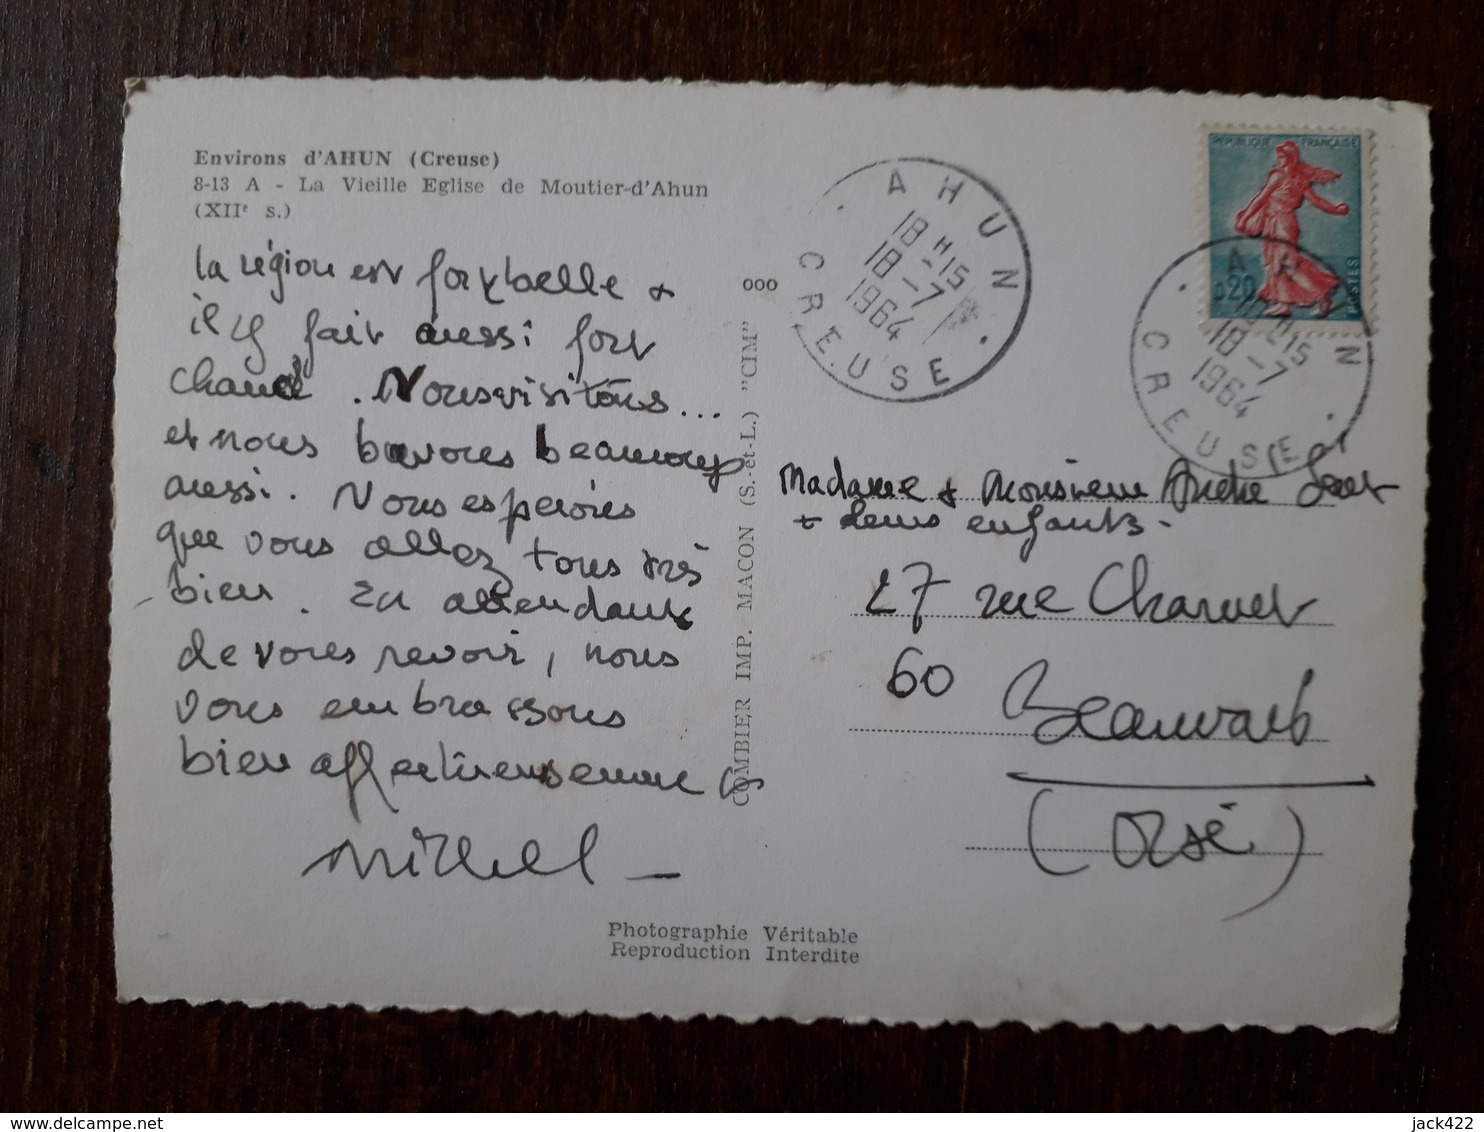 Environs d'AHUN (Creuse)
8-13 A - La Vieille Eglise de Moutier-d'Ahun
(XIIe s.)
la région est fort belle &
il y fait aussi fort
chaud. Nous visitons...
et nous buvons beaucoup
aussi. Nous espérons
que vous allez tous très
bien. En attendant
de vous revoir, nous
vous embrassons
bien affectueusement
Michel -
Photographie Véritable
Reproduction Interdite
COMBIER IMP. MACON (S.-et-L.) "CIM"
000
AHUN
18 H 15
18-7
1964
CREUSE
REPUBLIQUE FRANÇAISE
0,20
POSTES
AHUN
18 H 15
18-7
1964
CREUSE
Madame & Monsieur André
& leurs enfants -
27 rue Charvet
60 Beauvais
(Oise)
delcampe.net
jack422